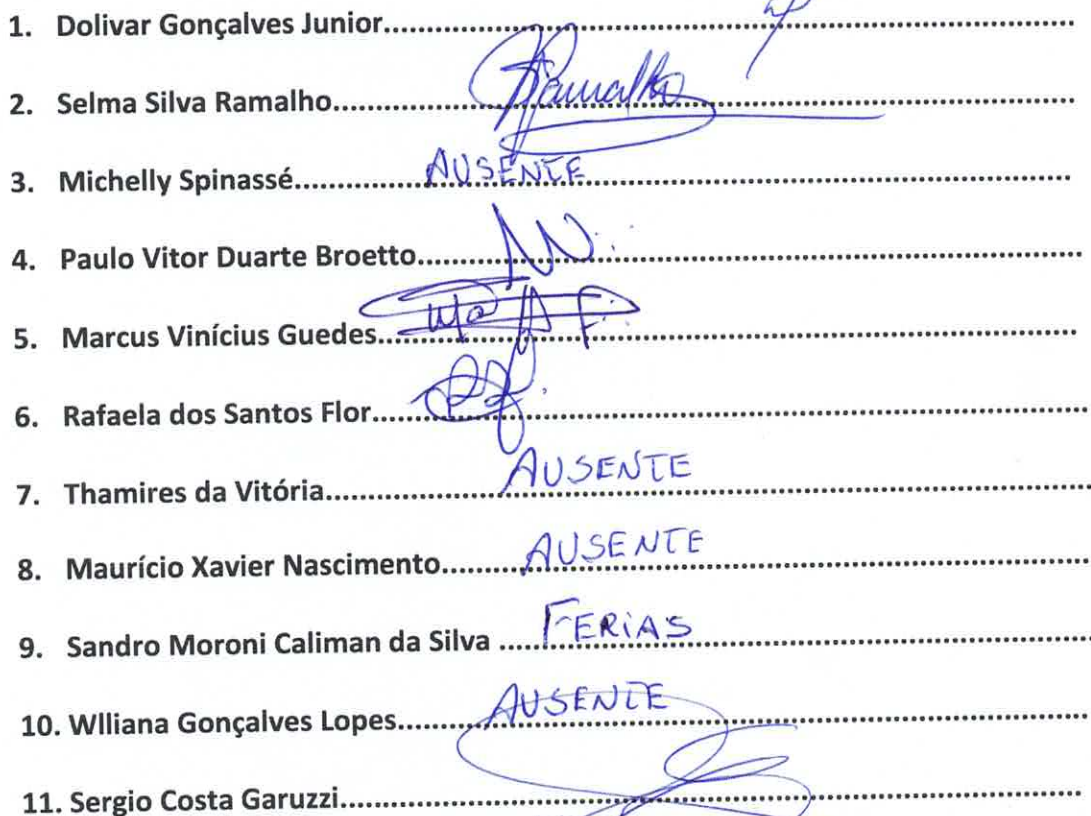 1. Dolivar Gonçalves Junior
2. Selma Silva Ramalho Ramalho
3. Michelly Spinassé AUSENTE
4. Paulo Vitor Duarte Broetto
5. Marcus Vinícius Guedes
6. Rafaela dos Santos Flor
7. Thamires da Vitória AUSENTE
8. Maurício Xavier Nascimento AUSENTE
9. Sandro Moroni Caliman da Silva FERIAS
10. Wlliana Gonçalves Lopes AUSENTE
11. Sergio Costa Garuzzi